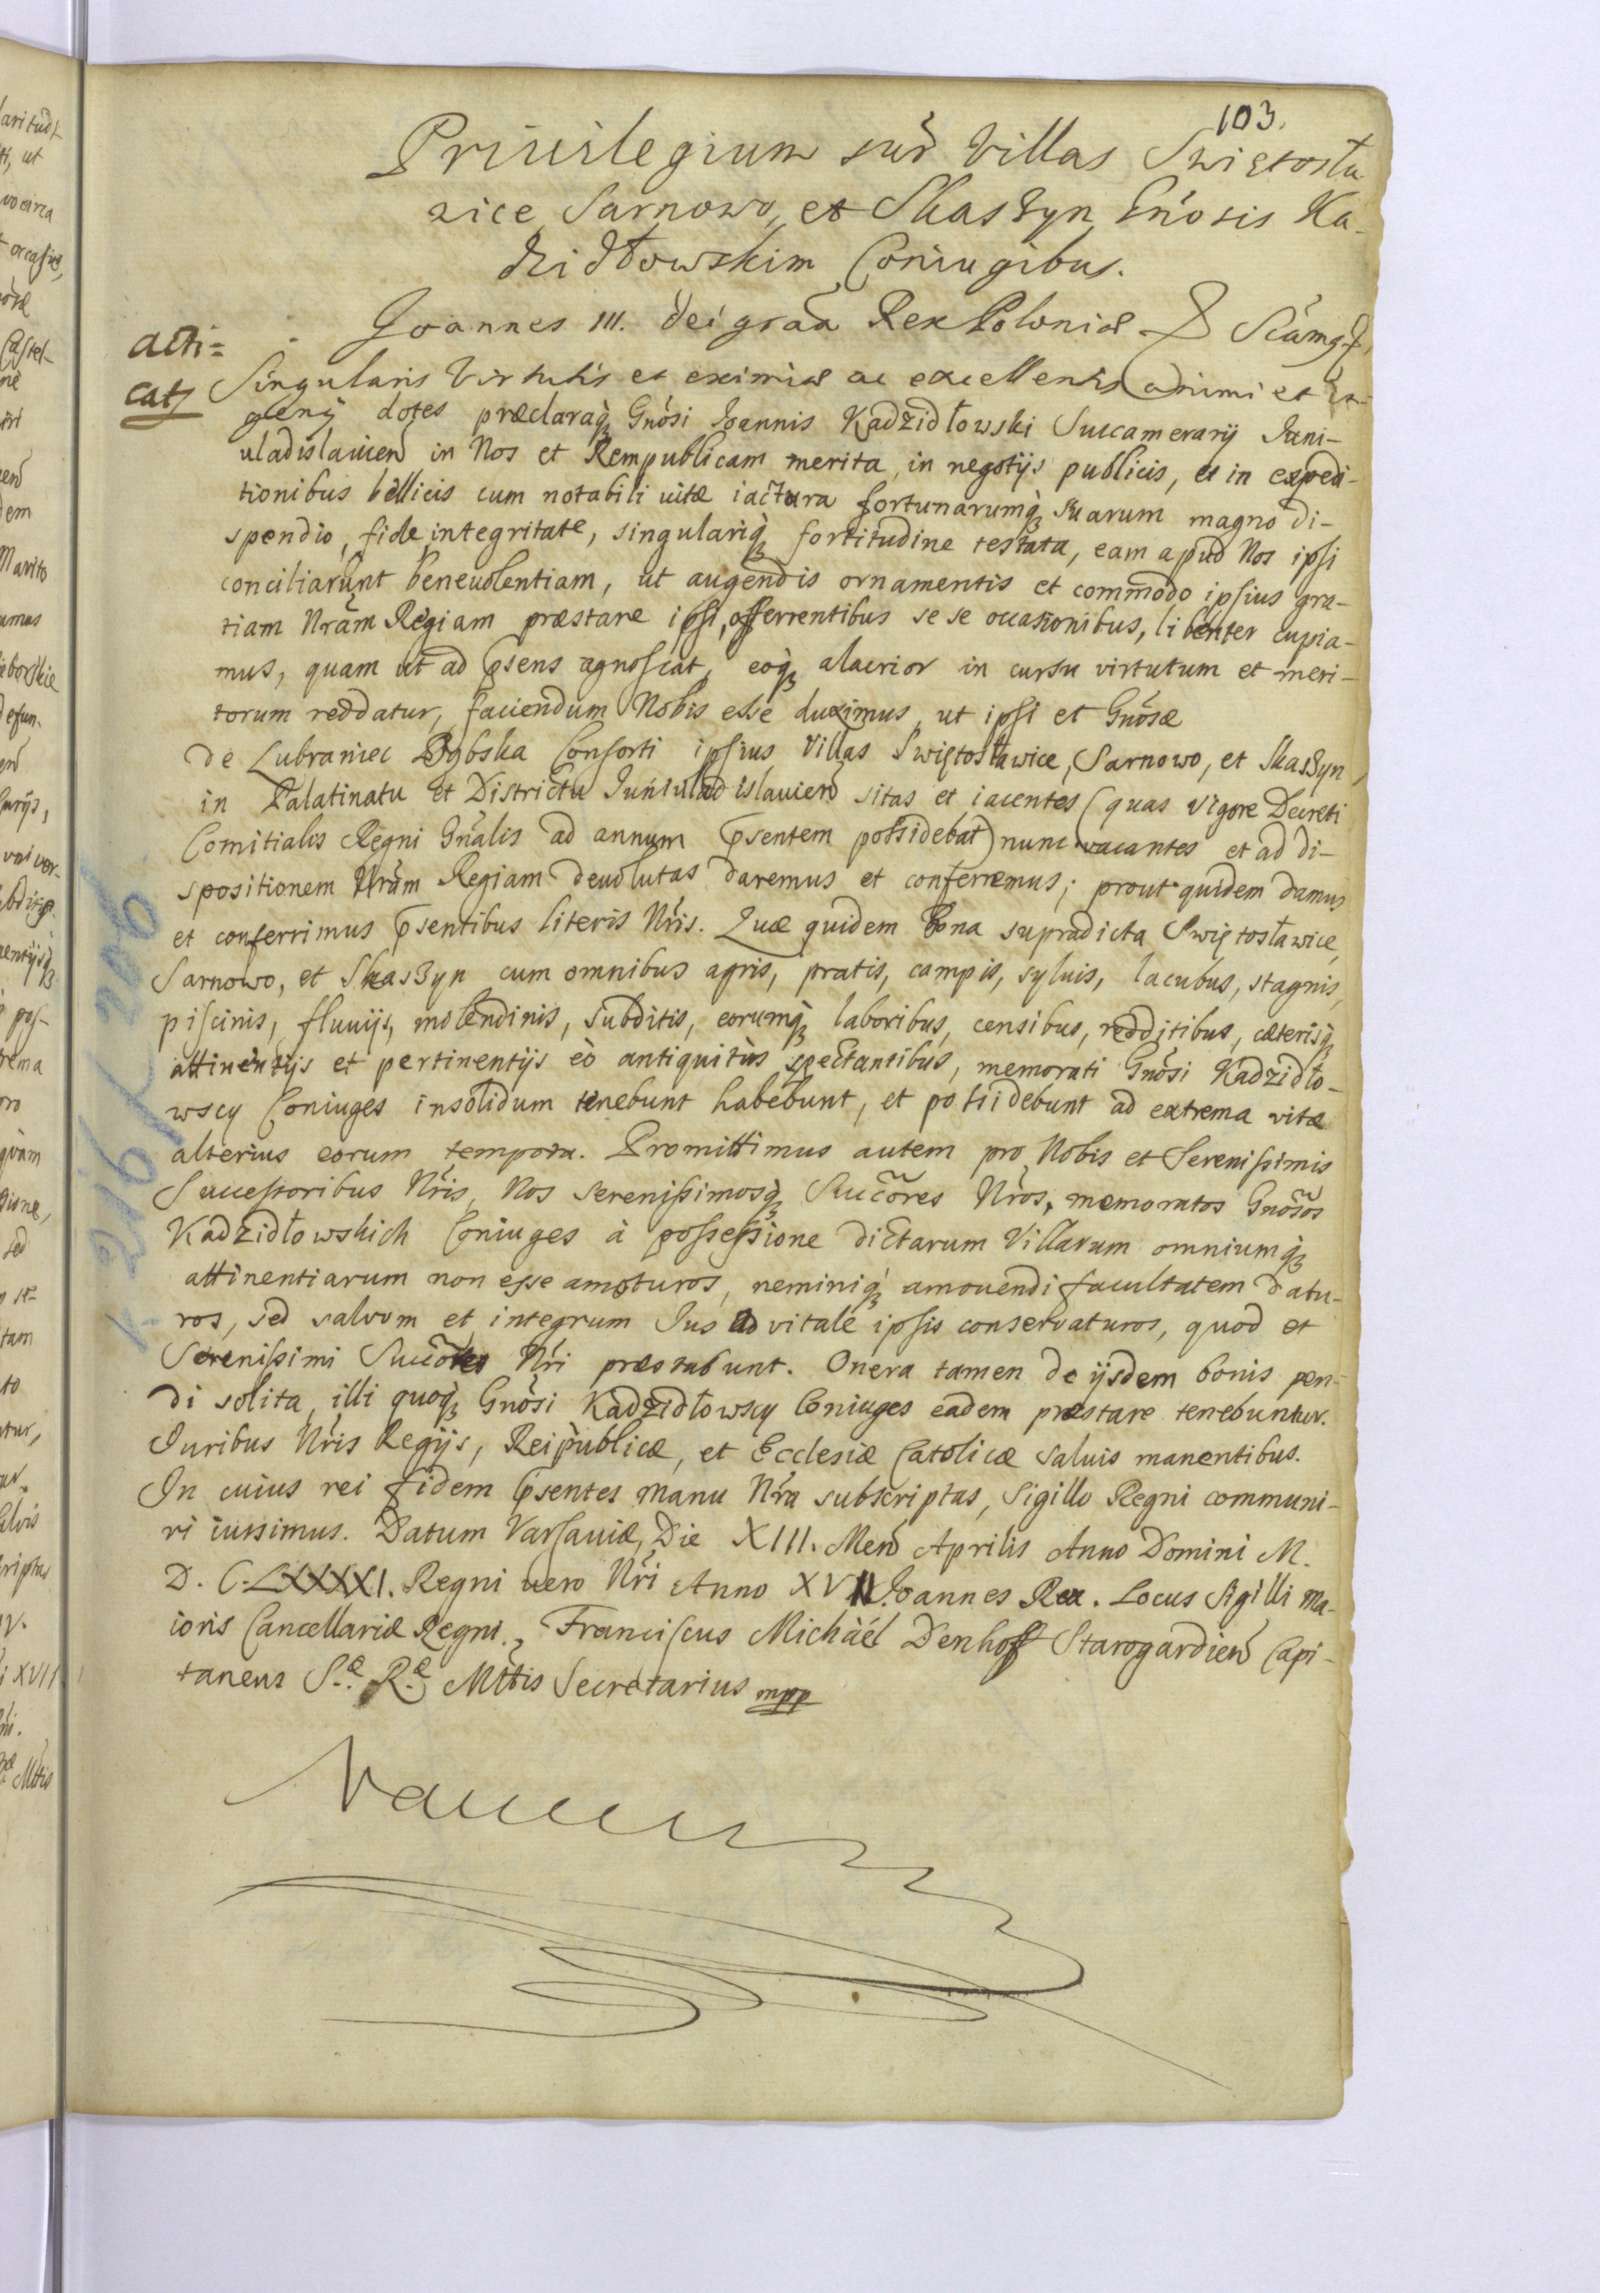 103.
Priuilegium sup̃ Villas Swiętosła
wice Sarnowo, et Skaszyn Gn̄osis Ka-
dzidłowskim Coniugibus.
acti=
cat
Joannes III. Dei gr̃aa Rex Poloniæ &c Sĩamꝫ
Singularis Virtutis et eximiæ ac excellentis animi et in-
genij dotes præclaraqꝫ Gn̄osi Joannis Kadzidłowski Succamerarij Juni-
uladislauien̄ in Nos et Rempublicam merita, in negotijs publicis, et in expedi-
tionibus bellicis cum notabili uitæ iactura fortunarumqꝫ suarum magno di-
spendio, fide, integritate, singulariqꝫ fortitudine testata, eam apud Nos ipsi
conciliarunt beneuolentiam, ut augendis ornamentis et commodo ipsius gra-
tiam Nr̃am Regiam præstare ipsi, offerrentibus se se occasionibus, libenter cupia-
mus, quam ut ad p̃sens agnoscat, eoqꝫ alacrior in cursu virtutum et meri-
torum reddatur, faciendum Nobis esse duximus, ut ipsi et Gn̄osæ
de Lubraniec Dąbska Consorti ipsius Villas Swiętosławice, Sarnowo, et Skaszyn,
in Palatinatu et Districtu Juniuladislauien̄ sitas et iacentes (quas vigore Decreti
Comitialis Regni Gn̄alis ad annum p̃sentem possidebat) nunc vacantes et ad di-
spositionem Nr̃am Regiam deuolutas daremus et conferremus; prout quidem damus
et conferrimus p̃sentibus literis Nr̃is. Quæ quidem Bona supradicta Swiętosławice,
Sarnowo, et Skaszyn cum omnibus agris, pratis, campis, syluis, lacubus, stagnis,
piscinis, fluuijs, molendinis, subditis, eorumqꝫ laboribus, censibus, redditibus, cæterisqꝫ
attinentijs et pertinentijs eò antiquitùs spectantibus, memorati Gn̄osi Kadzidło-
wscy Coniuges insolidum tenebunt habebunt, et possidebunt ad extrema vitæ
alterius eorum tempora. Promittimus autem pro Nobis et Serenissimis
Successoribus Nr̃is, Nos serenissimosqꝫ Succõres Nr̃os, memoratos Gn̄osos
Kadzidłowskich Coniuges à possessione dictarum Villarum omniumqꝫ
attinentiarum non esse amoturos, neminiqꝫ amouendi facultatem datu-
ros, sed salvum et integrum Jus aduitale ipsis conservaturos, quod et
Serenissimi Succõres Nr̃i præstabunt. Onera tamen de ijsdem bonis pen-
di solita, illi quoqꝫ Gn̄osi Kadzidłowscy Coniuges eadem præstare tenebuntur.
Juribus Nr̃is Regijs, Reipublicæ, et Ecclesiæ Catolicæ saluis manentibus.
In cuius rei fidem p̃sentes manu Nr̃a subscriptas, Sigillo Regni communi-
ri iussimus. Datum Varsauiæ, Die XIII. Men̄ Aprilis Anno Domini M.
D. C. LXXXXI. Regni uero Nr̃i Anno XVII. Joannes Rex. Locus Sigilli ma-
ioris Cancellariæ Regni., Franciscus Michäel Denhoff Starogardien̄ Capi-
taneus S.æ R.æ Mttis Secretarius mpp